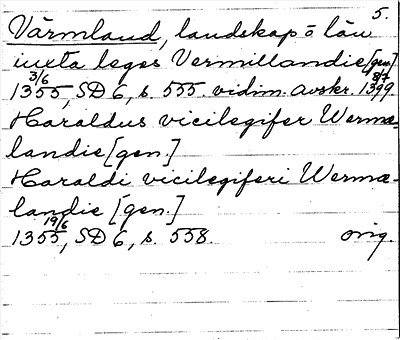 5.
Värmland, landskap o län
iuxta leges Vermillandie [gen]
3/6 8/7
1355, SD 6, s. 555. vidim. avskr. 1399
Haraldus vicilegifer Wermæ-
landie [gen.]
Haraldi vicilegiferi Wermæ-
landie [gen.]
19/6
1355, SD 6, s. 558. orig.